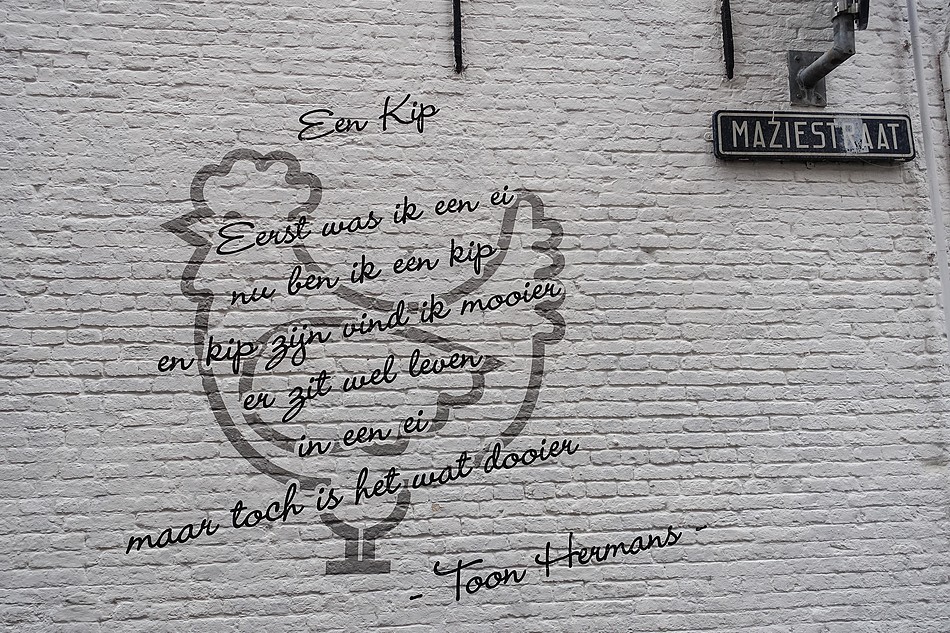 Een Kip
Eerst was ik een ei
nu ben ik een kip
en kip zijn vind ik mooier
er zit wel leven
in een ei
maar toch is het wat dooier
- Toon Hermans -
MAZIESTRAAT